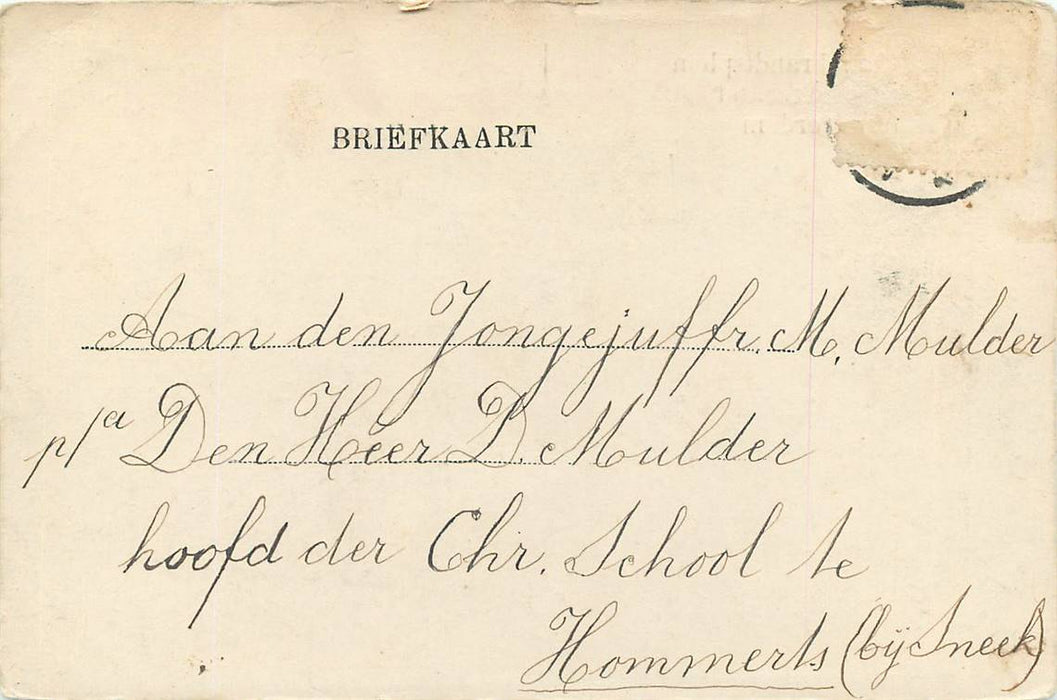 BRIEFKAART
Aan den Jongejuffr. M. Mulder
p/a Den Heer D. Mulder
hoofd der Chr. School te
Hommerts (bij Sneek)